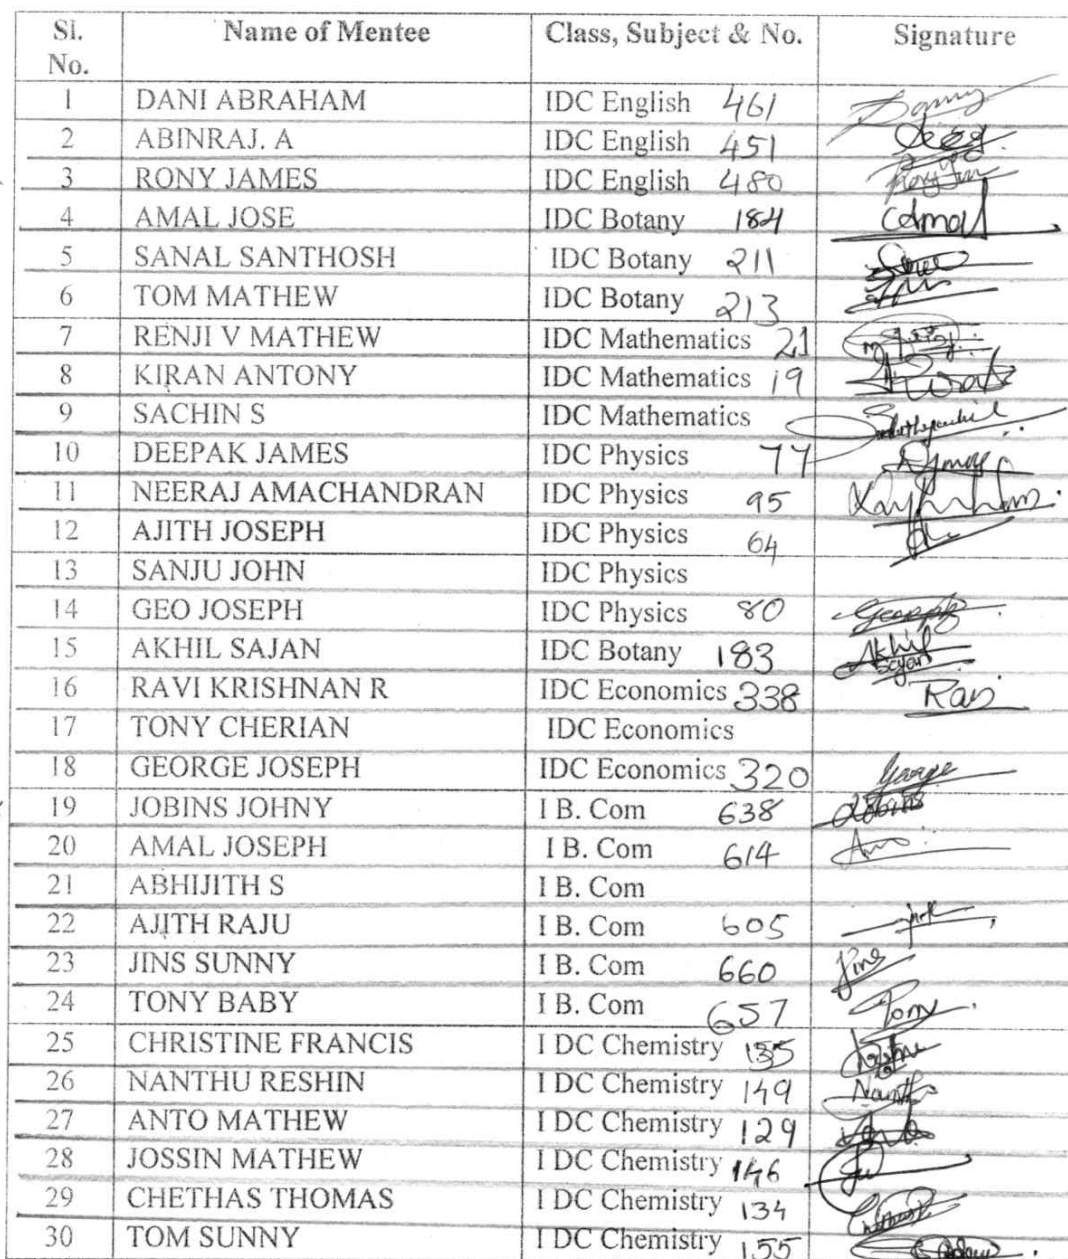 Sl. No. Name of Mentee Class, Subject & No. Signature
1 DANI ABRAHAM IDC English 461
2 ABINRAJ. A IDC English 451
3 RONY JAMES IDC English 480
4 AMAL JOSE IDC Botany 184 Amal
5 SANAL SANTHOSH IDC Botany 211
6 TOM MATHEW IDC Botany 213
7 RENJI V MATHEW IDC Mathematics 21
8 KIRAN ANTONY IDC Mathematics 19
9 SACHIN S IDC Mathematics
10 DEEPAK JAMES IDC Physics 77
11 NEERAJ AMACHANDRAN IDC Physics 95
12 AJITH JOSEPH IDC Physics 64
13 SANJU JOHN IDC Physics
14 GEO JOSEPH IDC Physics 80
15 AKHIL SAJAN IDC Botany 183 Akhil Sajan
16 RAVI KRISHNAN R IDC Economics 338 Ravi
17 TONY CHERIAN IDC Economics
18 GEORGE JOSEPH IDC Economics 320 George
19 JOBINS JOHNY I B. Com 638 Jobins
20 AMAL JOSEPH I B. Com 614
21 ABHIJITH S I B. Com
22 AJITH RAJU I B. Com 605
23 JINS SUNNY I B. Com 660 Jins
24 TONY BABY I B. Com 657 Tony
25 CHRISTINE FRANCIS I DC Chemistry 135
26 NANTHU RESHIN I DC Chemistry 149
27 ANTO MATHEW I DC Chemistry 129
28 JOSSIN MATHEW I DC Chemistry 146
29 CHETHAS THOMAS I DC Chemistry 134
30 TOM SUNNY I DC Chemistry 155